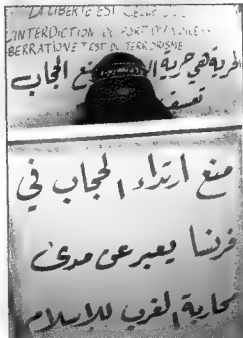 LA LIBERTÉ EST CELLE
L'INTERDICTION DU PORT DU VOILE
EST DE TERRORISME
الحرية هي حرية منع الحجاب
تعسف
منع ارتداء الحجاب في
فرنسا يعبر عن مدى
محاربة الغرب للإسلام